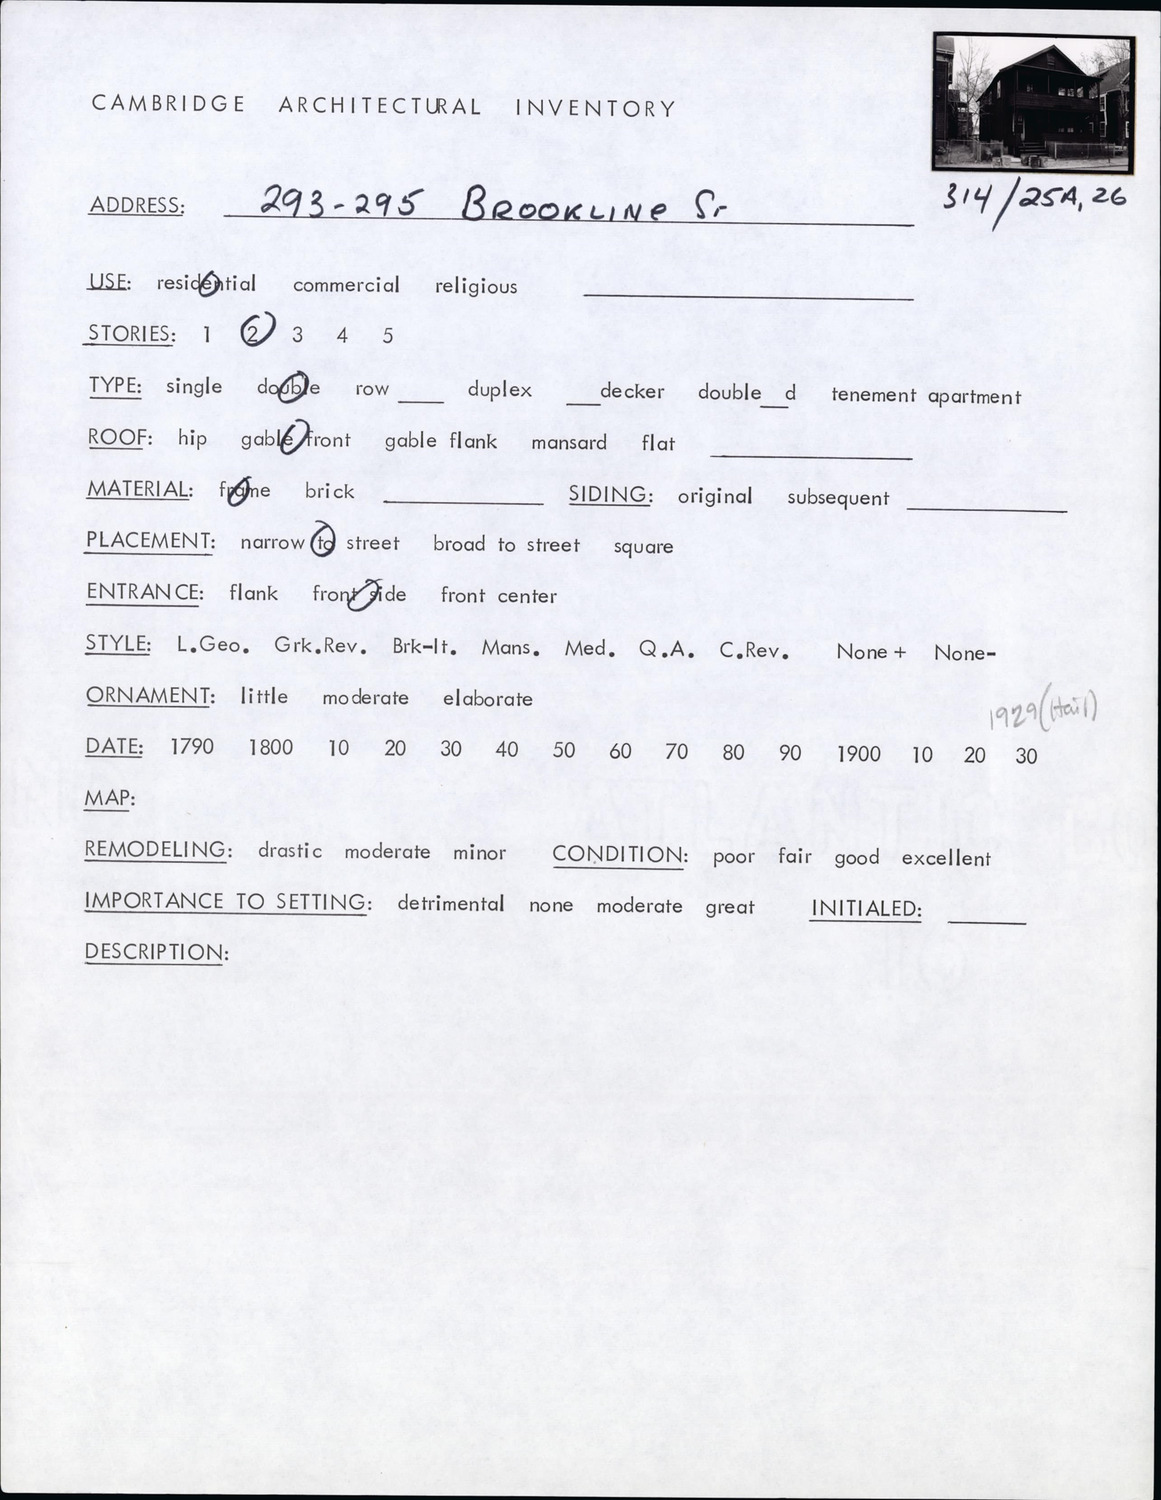 CAMBRIDGE ARCHITECTURAL INVENTORY
ADDRESS: 293-295 BROOKLINE ST
314/25A, 26
USE: residential commercial religious
STORIES: 1 2 3 4 5
TYPE: single double row ____ duplex ___decker double__d tenement apartment
ROOF: hip gable front gable flank mansard flat
MATERIAL: frame brick SIDING: original subsequent
PLACEMENT: narrow to street broad to street square
ENTRANCE: flank front side front center
STYLE: L.Geo. Grk.Rev. Brk-It. Mans. Med. Q.A. C.Rev. None + None-
ORNAMENT: little moderate elaborate
1929 (Hail)
DATE: 1790 1800 10 20 30 40 50 60 70 80 90 1900 10 20 30
MAP:
REMODELING: drastic moderate minor CONDITION: poor fair good excellent
IMPORTANCE TO SETTING: detrimental none moderate great INITIALED:
DESCRIPTION: